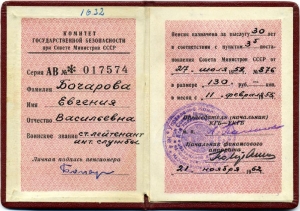 1632
КОМИТЕТ
ГОСУДАРСТВЕННОЙ БЕЗОПАСНОСТИ
при Совете Министров СССР
Серия АВ № 017574
Фамилия Бочарова
Имя Евгения
Отчество Васильевна
Воинское звание ст. лейтенант
инт. службы
Личная подпись пенсионера
Пенсия назначена за выслугу 30 лет
в соответствии с пунктом 35 постановления
Совета Министров СССР от
27 июля 59г. № 876
в размере 130 руб.
с 11 февраля
Председатель (начальник)
КГБ—УКГБ
Начальник финансового
21 ноября 1962